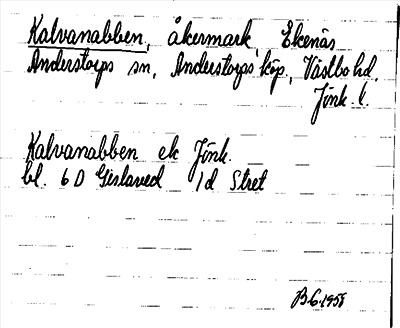 Kalvanabben, åkermark, Ekenäs
Anderstorps sn, Anderstorps köp., Västbo hd,
Jönk. l.
Kalvanabben ek Jönk.
bl. 6 D Gislaved 1d Stret
B.G. 1958